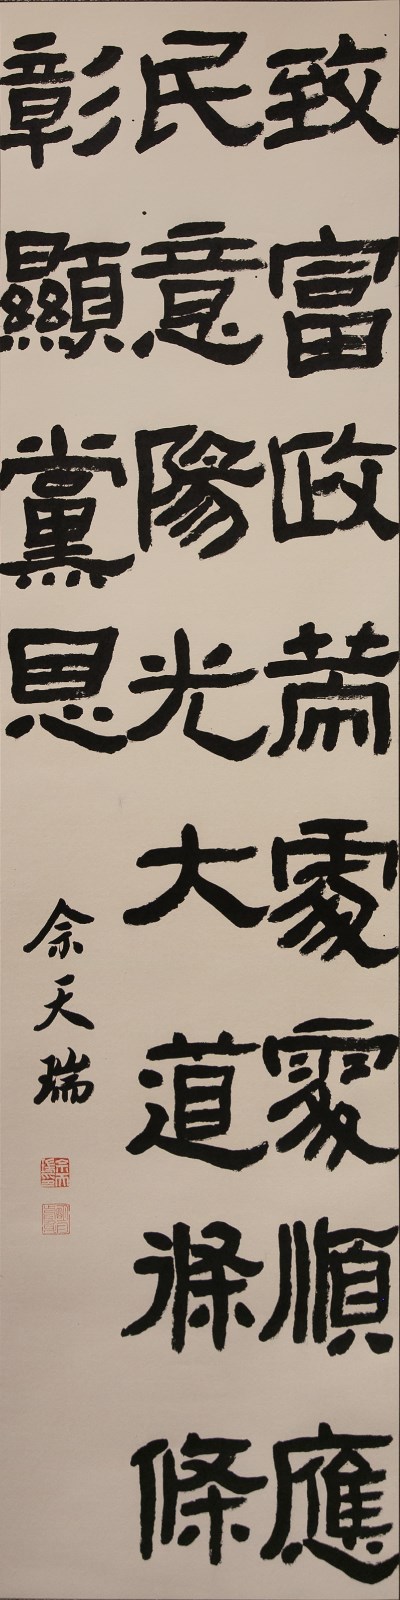 致富政策處處順應
民意陽光大道條條
彰顯黨恩
余天瑞